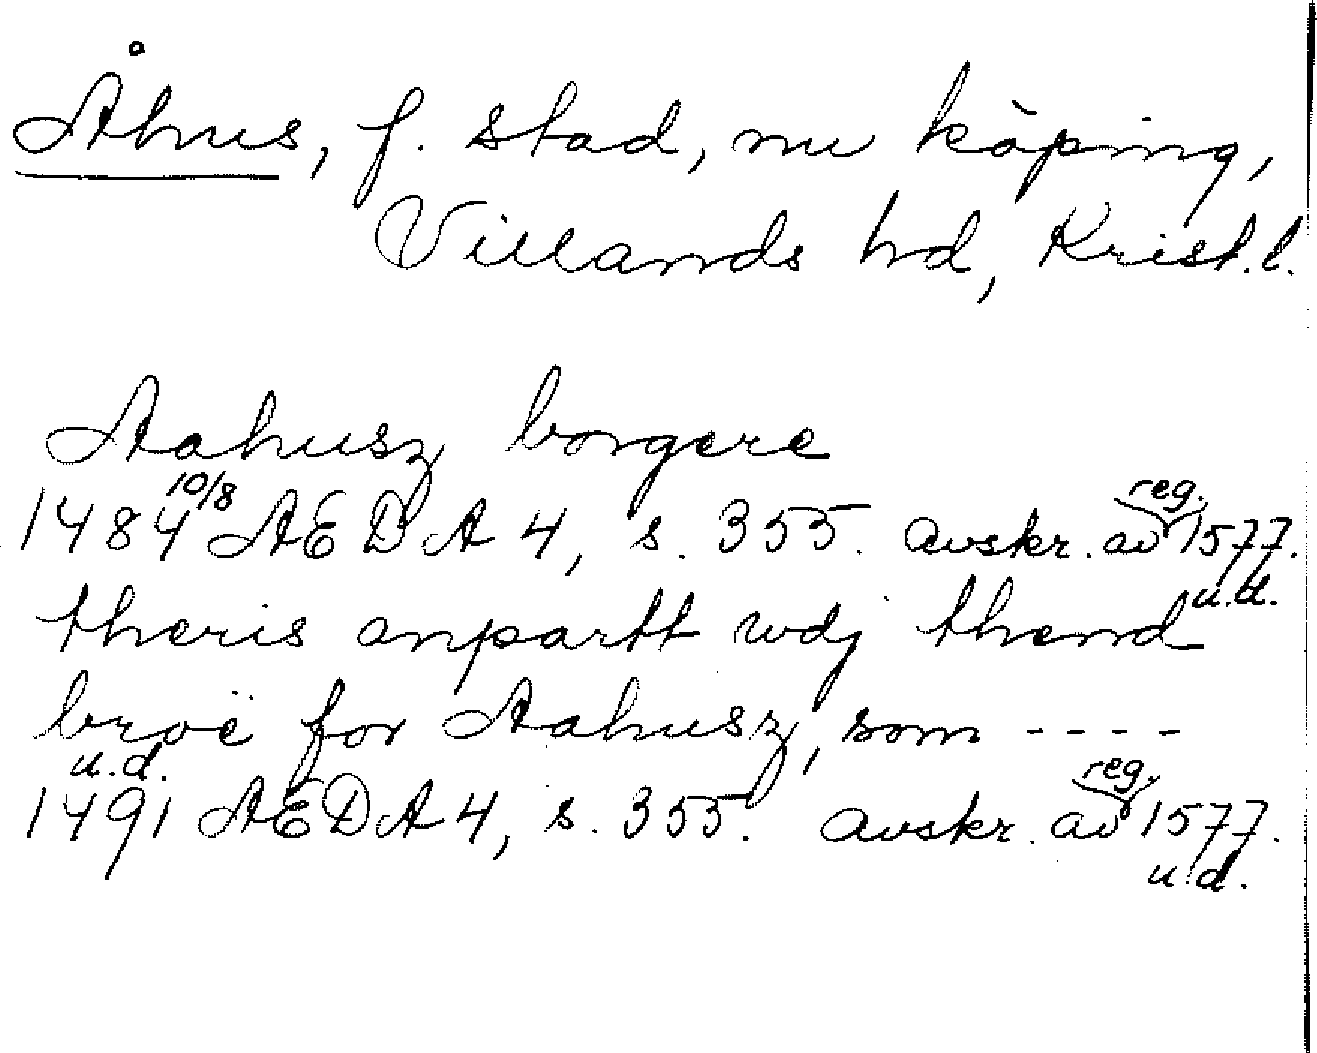 Åhus, f. stad, nu köping,
Villands hd, Krist.l.
Aahusz borgere
1484 10/8 AEDA 4, s. 355. avskr. av reg. 1577. u.d.
theris anpartt wdj thend
broë for Aahusz, som ----
1491 u.d. AEDA 4, s. 355. avskr. av reg. 1577. u.d.